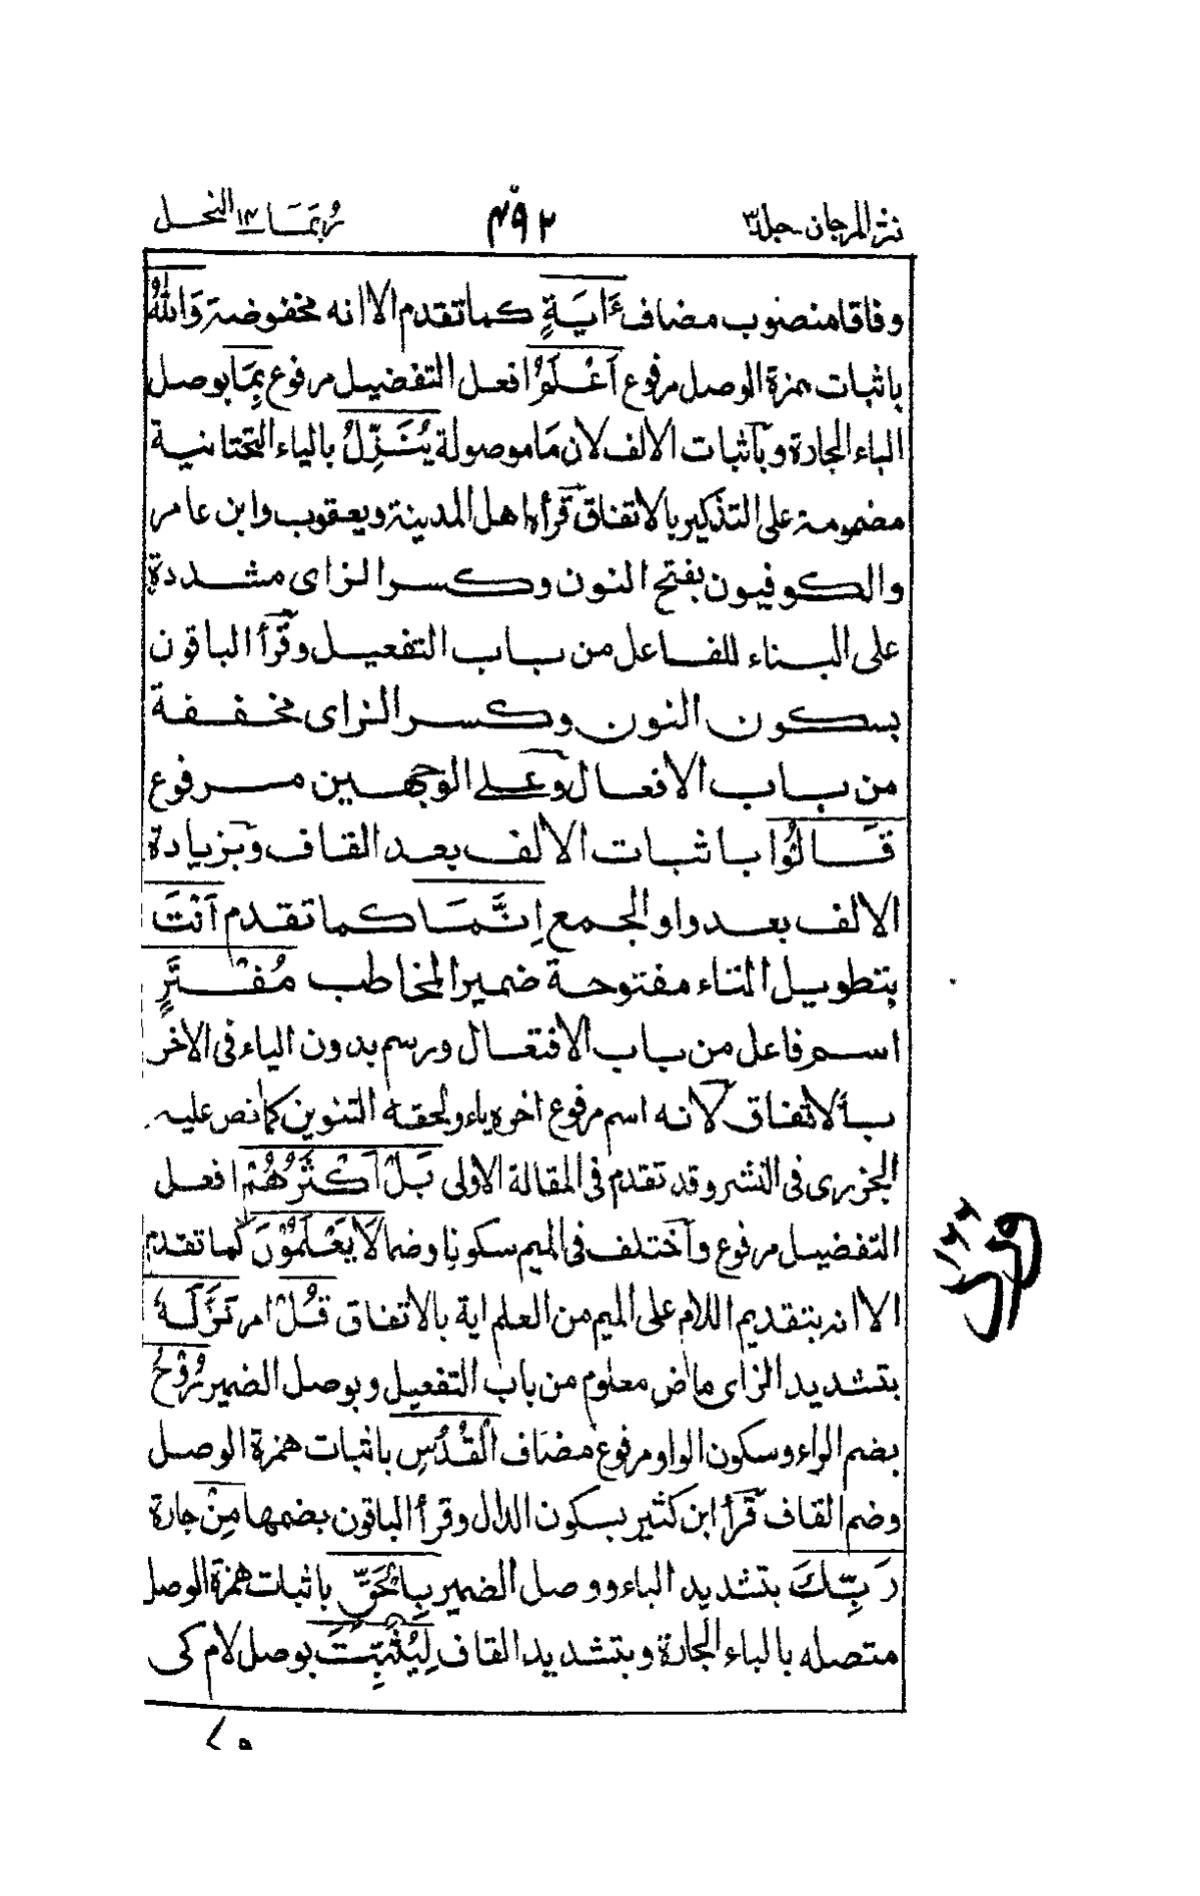 نثر المرجان۔جلد٣ ٤٩٢ رُبَمَا ١٤ النحل
وفاقا منصوب مضاف ءَايَةٍ كما تقدم الا انه مخفوضة وَاللهُ
باثبات همزة الوصل مرفوع اَعْلَمُ افعل التفضيل مرفوع بِمَا بوصل
الباء الجارة وبآثبات الالف لان مَا موصولة يُنَزِّلُ بالياء التحتانية
مضمومة على التذكير بالاتفاق قرأه اهل المدينة ويعقوب وابن عامر
والكوفيون بفتح النون وكسر الزاى مشددة
على البناء للفاعل من باب التفعيل وقرأ الباقون
بسكون النون وكسر الزاى مخففة
من باب الافعال وعلى الوجهين مرفوع
قَالُوْا باثبات الالف بعد القاف وبزيادة
الالف بعد واو الجمع اِنَّمَا كما تقدم اَنْتَ
بتطويل التاء مفتوحة ضمير المخاطب مُفْتَرٍ
اسم فاعل من باب الافتعال ورسم بدون الياء فى الاخر
بالاتفاق لانه اسم مرفوع اخره ياء ولحقه التنوين كما نص عليه
الجزرى فى النشر وقد تقدم فى المقالة الاولى بَلْ اَكْثَرُهُمْ افعل
التفضيل مرفوع وآختلف فى الميم سكونا وضما لَا يَعْلَمُوْنَ كما تقدم
الا انه بتقديم اللام على الميم من العلم اية بالاتفاق قُلْ امر نَزَّلَهُ
بتشديد الزاى ماض معلوم من باب التفعيل وبوصل الضمير رُوْحُ
بضم الراء وسكون الواو مرفوع مضاف الْقُدُسِ باثبات همزة الوصل
وضم القاف قرأ ابن كثير بسكون الدال وقرأ الباقون بضمها مِنْ جارة
رَبِّكَ بتشديد الباء ووصل الضمير بِالْحَقِّ باثبات همزة الوصل
متصله بالباء الجارة وبتشديد القاف لِيُثَبِّتَ بوصل لام كى